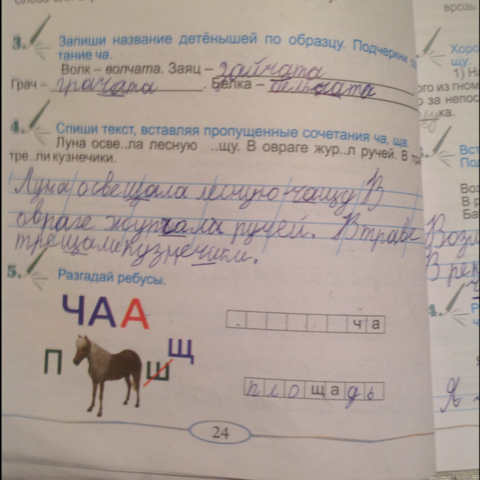 3. Запиши название детёнышей по образцу. Подчеркни со
тание ча.
Волк – волчата. Заяц – зайчата
Грач – грачата . Белка – бельчата
4. Спиши текст, вставляя пропущенные сочетания ча, ща.
Луна осве..ла лесную ..щу. В овраге жур..л ручей. В тра
тре..ли кузнечики.
Луна освещала лесную чащу В
овраге журчала ручей. В траве
трещали кузнечики.
5. Разгадай ребусы.
ЧАА
ча
П Ш Щ
площадь
24
врозь
Хоро
щу.
1) На
ого из гном
о за непос
ка.
Вст
По
Воз
В р
Ба
Возл
В рек
Я